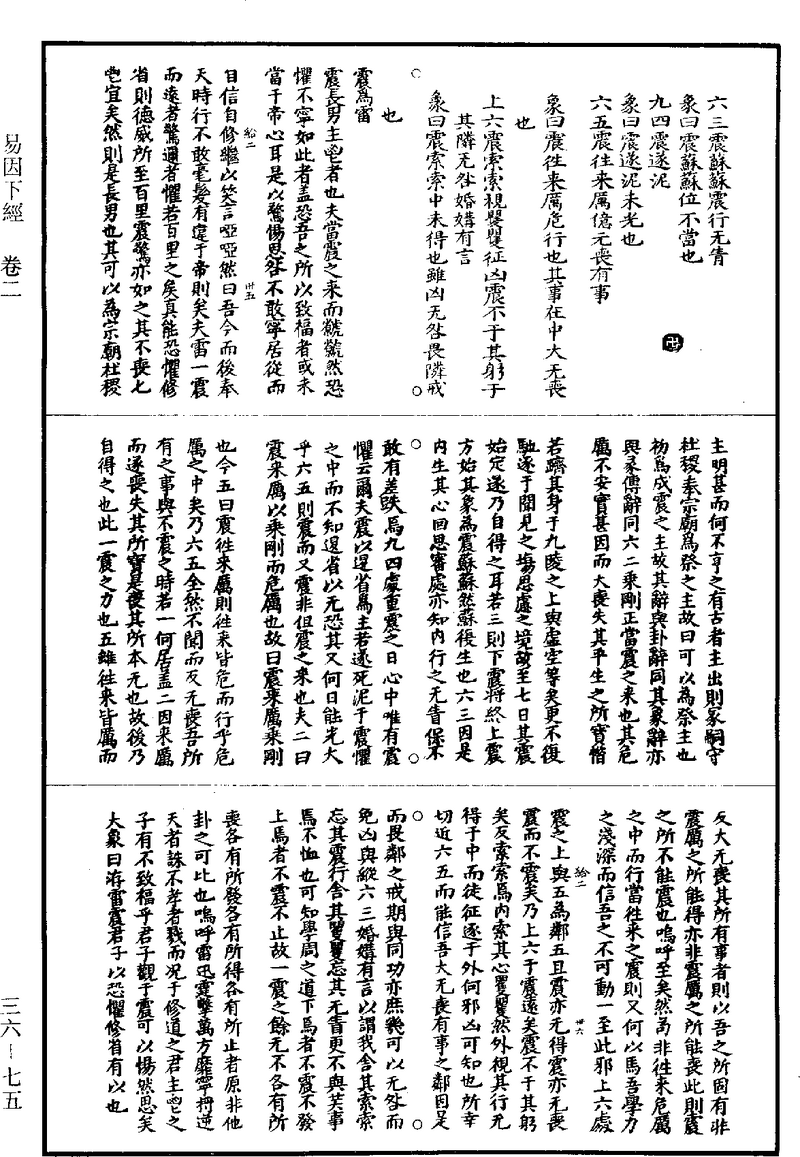 易因下經 卷二
六三震蘇蘇震行无眚
象曰震蘇蘇位不當也
九四震遂泥
象曰震遂泥未光也
六五震往来厲億无喪有事
象曰震往来厲危行也其事在中大无喪
也
上六震索索視矍矍征凶震不于其躬于
其隣无咎婚媾有言
象曰震索索中未得也雖凶无咎畏隣戒
也
震為雷
震長男主鬯者也夫當震之来而虩虩然恐
懼不寧如此者盖恐吾之所以致福者或未
當于帝心耳是以驚惕思咎不敢寧居從而
目信自修繼以笑言啞啞然曰吾今而後奉
天時行不敢毫髮有違于帝則矣夫雷一震
而遠者驚邇者懼若百里之矣真能恐懼修
省則德威所至百里震驚亦如之其不喪匕
鬯宜矣然則是長男也其可以為宗廟社稷
主明甚而何不亨之有古者主出則冢嗣守
社稷奉宗廟為祭之主故曰可以為祭主也
初為成震之主故其辭與卦辭同其象辭亦
與彖傳辭同六二乘剛正當震之来也其危
厲不安實甚因而大喪失其平生之所寶惜
若躋其身于九陵之上與虚空等矣更不復
馳逐于聞見之塲思慮之境故至七日其震
始定遂乃自得之耳若三則下震將終上震
方始其象為震蘇蘇然蘇復生也六三因是
内生其心回思審處亦知内行之无眚保不
敢有差跌焉九四處重震之日心中唯有震
懼云爾夫震以遑省為主若遂死泥于震懼
之中而不知遑省以无恐其又何日能光大
乎六五則震而又震非但震之来也夫二曰
震来厲以乘剛而危厲也故曰震来厲乘剛
也今五曰震往来厲則往来皆危而行乎危
厲之中矣乃六五全然不聞而反无喪吾所
有之事與不震之時若一何居盖二因来厲
而遂喪失其所寶是喪其所本无也故後乃
自得之也此一震之力也五雖往来皆厲而
反大无喪其所有事者則以吾之所固有非
震厲之所能得亦非震厲之所能喪此則震
之所不能震也嗚呼至矣然苟非往来危厲
之中而行當往来之震則又何以馬吾學力
之淺深而信吾之不可動一至此邪上六處
震之上與五為鄰五且震亦无得震亦无喪
震而不震矣乃上六于震遠矣震不于其躬
矣反索索焉内索其心矍矍然外視其行无
得于中而徒征逐于外何邪凶可知也所幸
切近六五而能信吾大无喪有事之鄰因是
而畏鄰之戒期與同功亦庶幾可以无咎而
免凶與縱六三婚媾有言以謂我舍其索索
忘其震行舍其矍矍忘其无眚更不與共事
焉不恤也可知學周之道下焉者不震不發
上焉者不震不止故一震之餘无不各有所
喪各有所發各有所得各有所止者原非他
卦之可比也嗚呼雷迅霆擊萬方靡寧將逆
天者誅不孝者戮而况于修道之君主鬯之
子有不致福乎君子觀于震可以惕然思矣
大象曰洊雷震君子以恐懼修省有以也
三六－七五